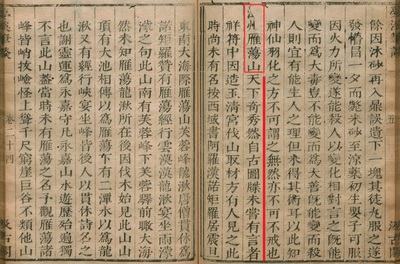 餘因冰砂再入鼎誤遺下一塊其徒丸服之遂
發懵冒一夕而斃朱砂至涼藥初生嬰子可服
因火力所變遂能殺人以變化相對言之既能
變而為大毒豈不能變而為大善既能變而殺
人則宜有能生人之理但未得其術耳以此知
神仙羽化之方不可謂之無然亦不可不戒也
溫州雁蕩山天下奇秀然自古圖牒未嘗有言者
祥符中因造玉清宮伐山取材方有人見之此
時尚未有名按西域書阿羅漢諾矩羅居震旦
東南大海際雁蕩山芙蓉峰龍湫唐僧貫休為
諾矩羅贊有雁蕩經行雲漠漠龍湫宴坐雨濛
濛之句此山南有芙蓉峰下芙蓉驛前瞰大海
然未知雁蕩龍湫所在後因伐木始見此山山
頂有大池相傳以為雁蕩下有二潭水以為龍
湫又有經行峽宴坐峰皆後人以貫休詩名之
也謝靈運為永嘉守凡永嘉山水遊歷殆遍獨
不言此山蓋當時未有雁蕩之名予觀雁蕩諸
峰皆峭拔嶮怪上聳千尺窮崖巨谷不類他山
卷二十四
汲古閣